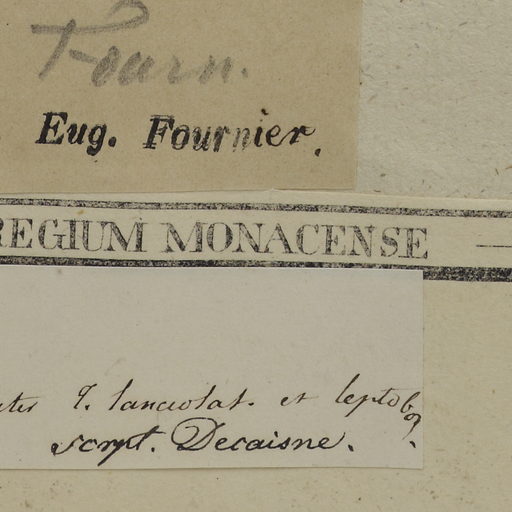 Fourn.
Eug. Fournier.
REGIUM MONACENSE
T. lanceolat. et leptob
script. Decaisne.